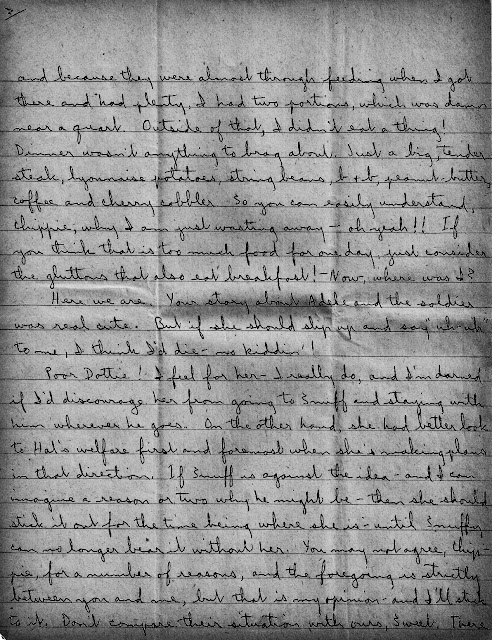 3/
and because they were almost through feeding when I got
there and had plenty, I had two portions, which was damn
near a quart. Outside of that, I didn't eat a thing!
Dinner wasn't anything to brag about. Just a big, tender
steak, lyonnaise potatoes, string beans, b & b, peanut-butter,
coffee and cherry cobbler. So you can easily understand,
chippie, why I am just wasting away - oh yeah!! If
you think that is too much food for one day, just consider
the gluttons that also eat breakfast! - Now, where was I?
Here we are. Your story about Adele and the soldier
was real cute. But if she should slip up and say uh-uh"
to me, I think I'd die - no kiddin'!
Poor Dottie! I feel for her - I really do, and I'm darned
if I'd discourage her from going to Snuff and staying with
him wherever he goes. On the other hand, she had better look
to Hal's welfare first and foremost when she's making plans
in that direction. If Snuff is against the idea - and I can
imagine a reason or two why he might be - then she should
stick it out for the time being where she is - until Snuffy
can no longer bear it without her. You may not agree, Chip-
pie, for a number of reasons, and the foregoing is strictly
between you and me, but that is my opinion - and I'll stick
to it. Don't compare their situation with ours, Sweet. There